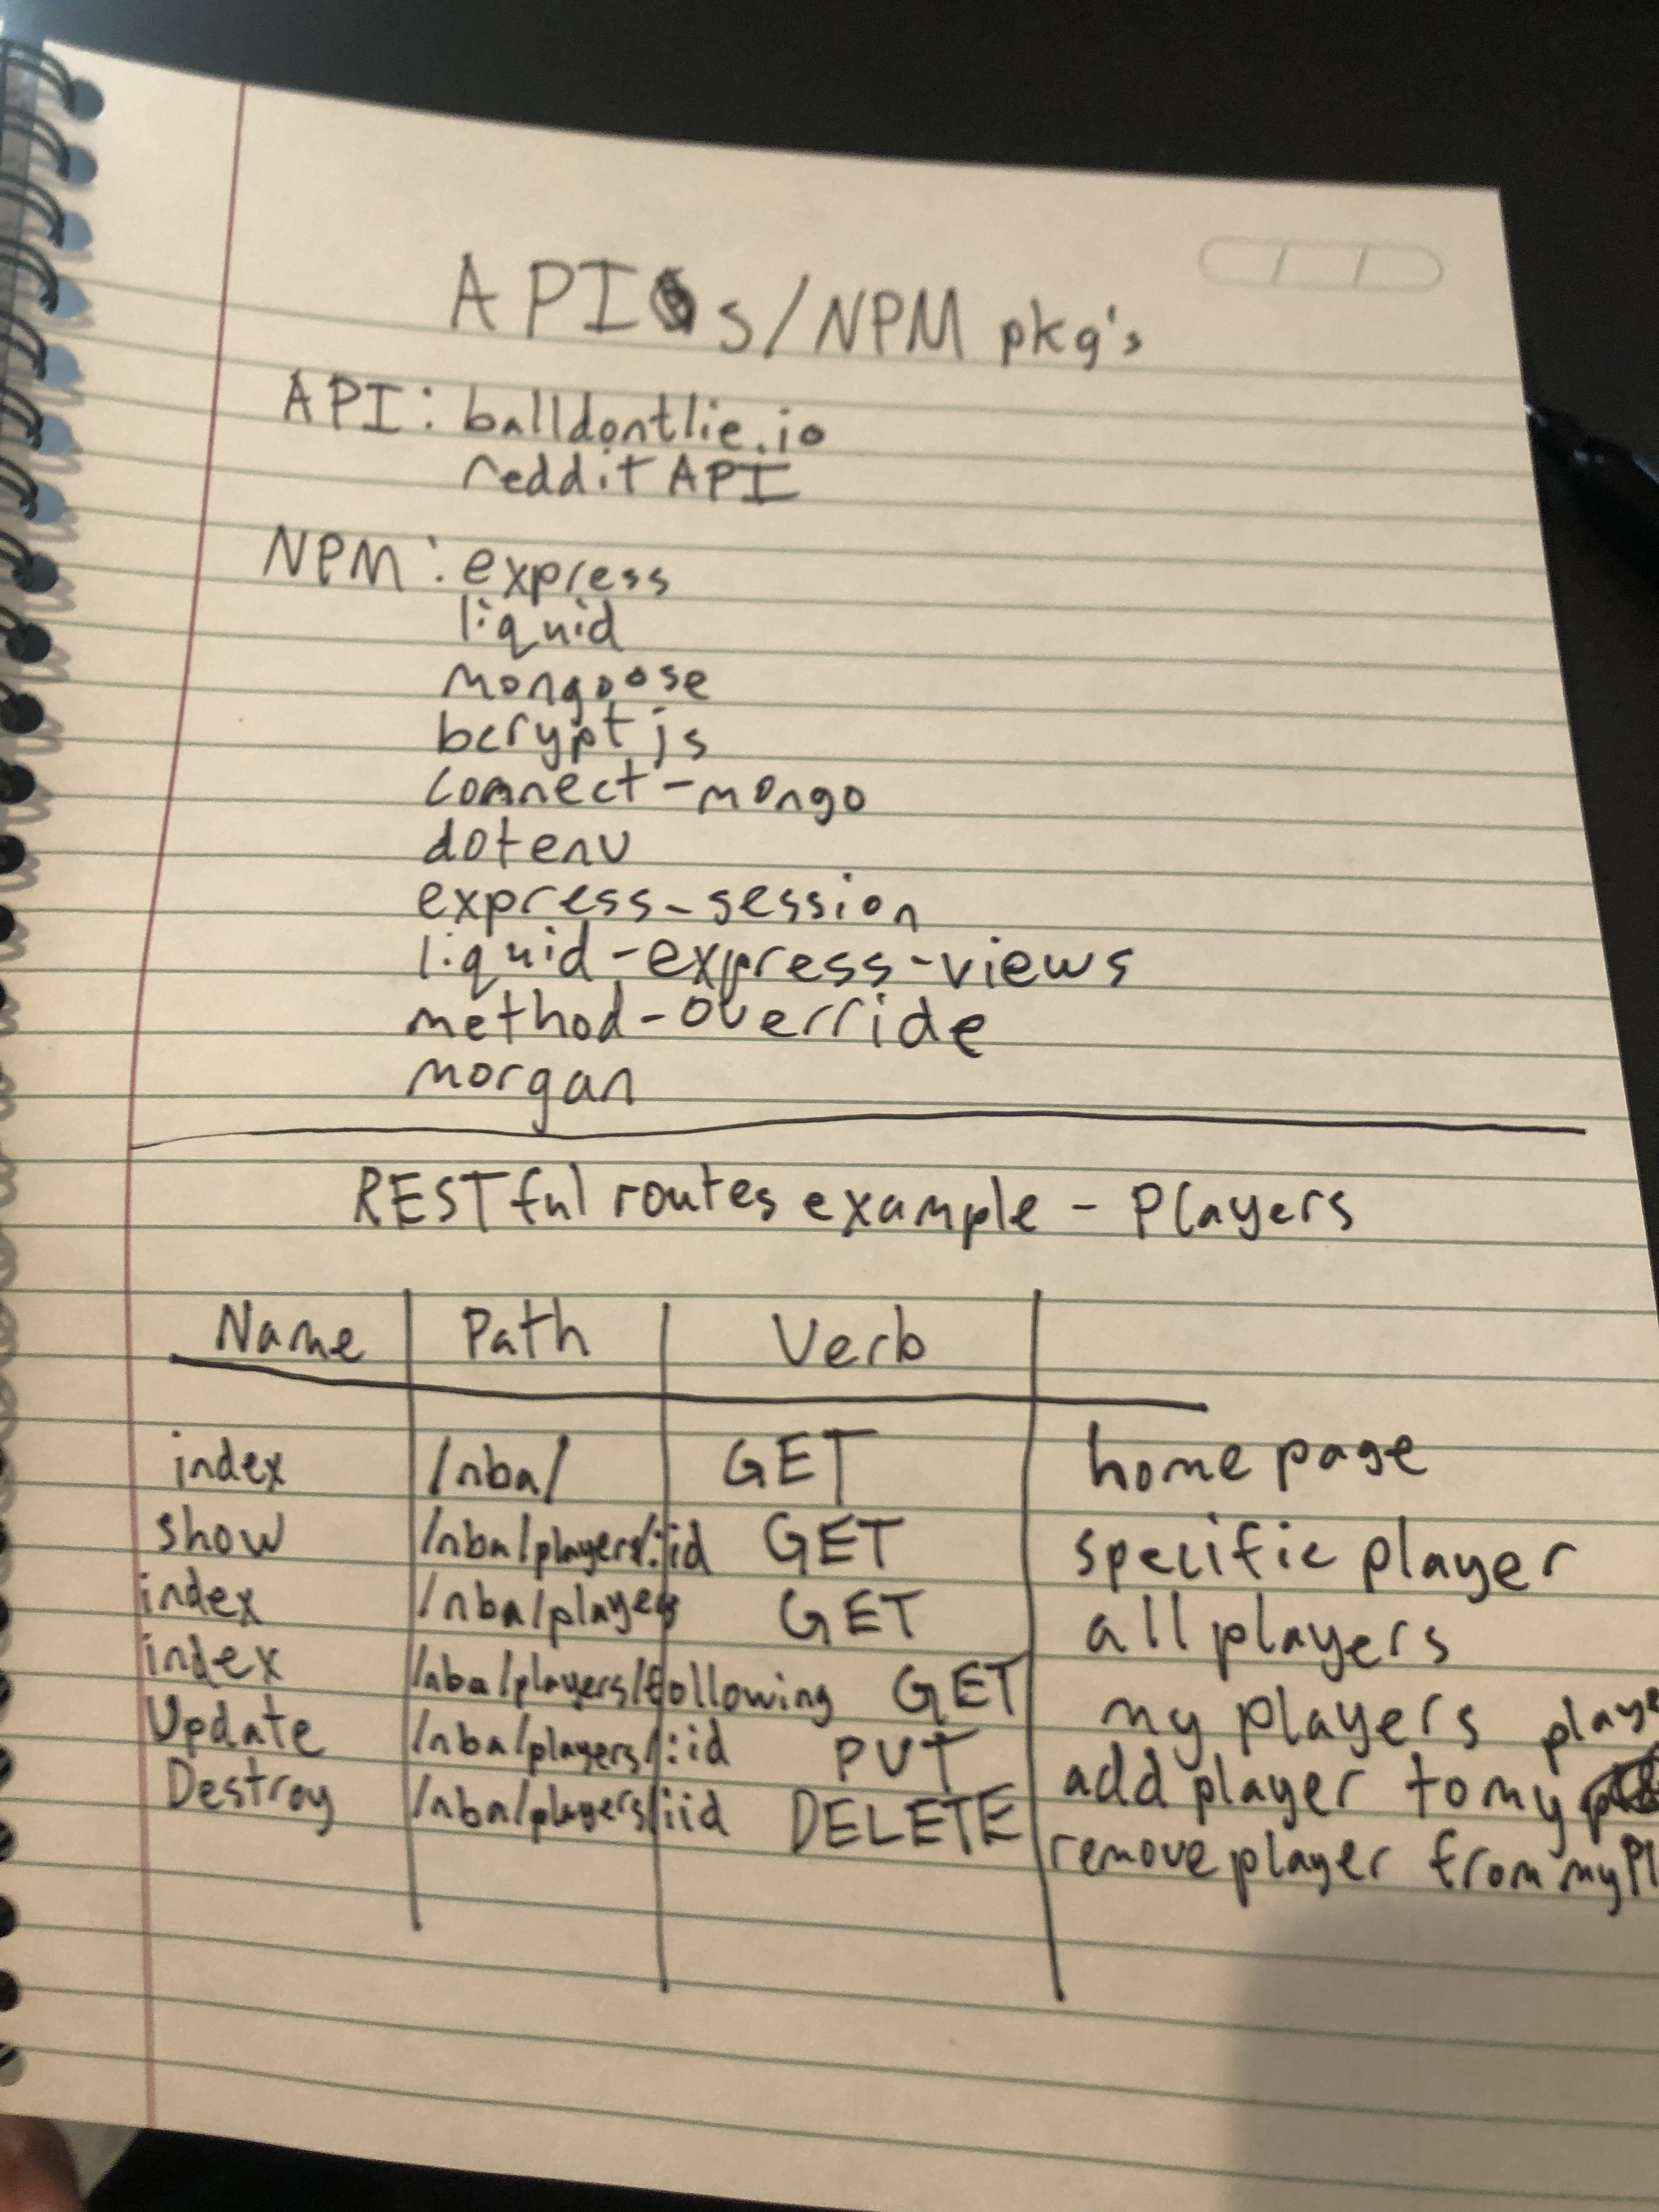 APIs/NPM pkg's
API: balldontlie.io
reddit API
NPM: express
liquid
mongoose
bcryptjs
connect-mongo
dotenv
express-session
liquid-express-views
method-override
morgan
RESTful routes example - Players
Name Path Verb
index /nba/ GET home page
show /nba/players/:id GET specific player
index /nba/players GET all players
index /nba/players/following GET my players
Update /nba/players/:id PUT add player to my playe
Destroy /nba/players/:id DELETE remove player from my Pl